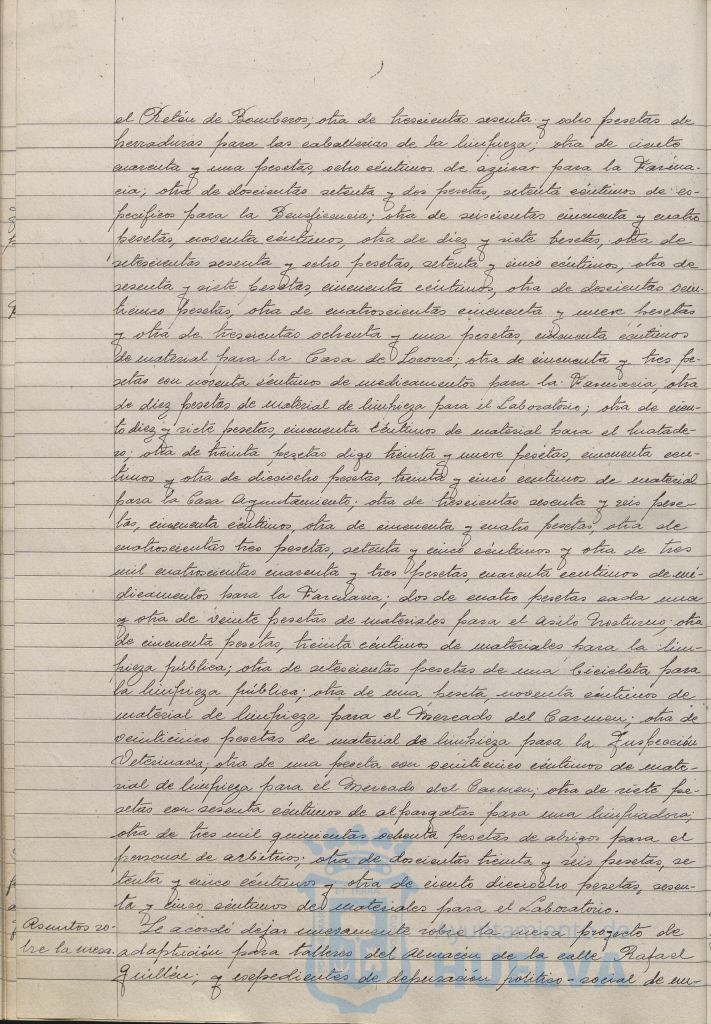 el Retén de Bomberos; otra de trescientas sesenta y ocho pesetas de
herraduras para las caballerias de la limpieza; otra de ciento
cuarenta y una pesetas, ocho céntimos de azúcar para la Farma-
cia; otra de doscientas setenta y dos pesetas, setenta céntimos de es-
pecíficos para la Beneficencia; otra de seiscientas cincuenta y cuatro
pesetas, noventa céntimos, otra de diez y siete pesetas, otra de
setecientas sesenta y ocho pesetas, setenta y cinco céntimos, otra de
sesenta y siete pesetas, cincuenta céntimos, otra de doscientas vein-
ticinco pesetas, otra de cuatroscientas cincuenta y nueve pesetas
y otra de trescientas ochenta y una pesetas, cincuenta céntimos
de material para la Casa de Socorro; otra de cincuenta y tres pe-
setas con noventa céntimos de medicamentos para la Farmacia, otra
de diez pesetas de material de limpieza para el Laboratorio; otra de cien-
to diez y siete pesetas, cincuenta céntimos de material para el Matade-
ro; otra de treinta pesetas digo treinta y nueve pesetas, cincuenta cén-
timos y otra de dieciocho pesetas, treinta y cinco centimos de material
para la Casa Ayuntamiento; otra de trescientas sesenta y seis pese-
tas, cincuenta céntimos, otra de cincuenta y cuatro pesetas, otra de
cuatroscientas tres pesetas, setenta y cinco céntimos y otra de tres
mil cuatroscientas cuarenta y tres pesetas, cuarenta centimos de mé-
dicamentos para la Farmacia; dos de cuatro pesetas cada una
y otra de veinte pesetas de materiales para el Asilo Nocturno; otra
de cincuenta pesetas, treinta céntimos de materiales para la lim-
pieza pública; otra de setescientas pesetas de una bicicleta para
la limpieza pública; otra de una peseta, noventa céntimos de
material de limpieza para el Mercado del Carmen; otra de
veinticinco pesetas de material de limpieza para la Inspección
Veterinaria; otra de una peseta con veinticinco céntimos de mate-
rial de limpieza para el Mercado del Carmen; otra de siete pe-
setas con sesenta céntimos de alpargatas para una limpiadora;
otra de tres mil quinientas ochenta pesetas de abrigos para el
personal de arbitrios; otra de doscientas treinta y seis pesetas, se-
tenta y cinco céntimos y otra de ciento dieciocho pesetas, sesen-
ta y cinco céntimos de materiales para el Laboratorio.
Asuntos so-
bre la mesa.
Se acordó dejar nuevamente sobre la mesa proyecto de
adaptación para talleres del Almacén de la calle Rafael
Guillén; y expedientes de depuración político-social de em-
Ayuntamiento
HUELVA